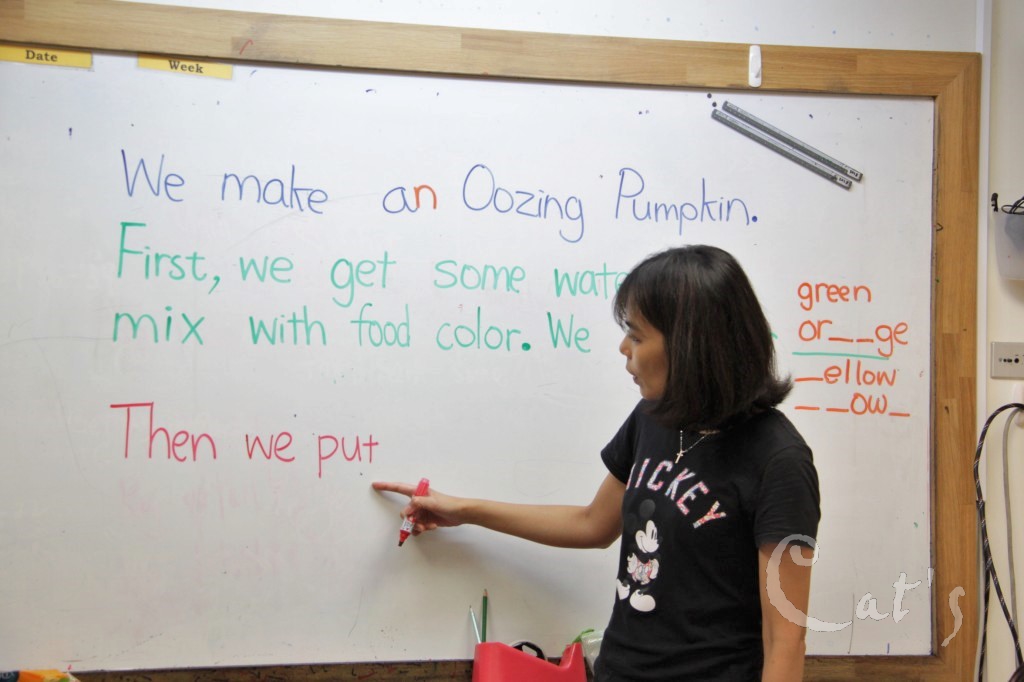 Date
Week
We make an Oozing Pumpkin.
First, we get some
mix with food color. We
Then we put
green
or__ge
_ellow
__ow_
MICKEY
Cat's